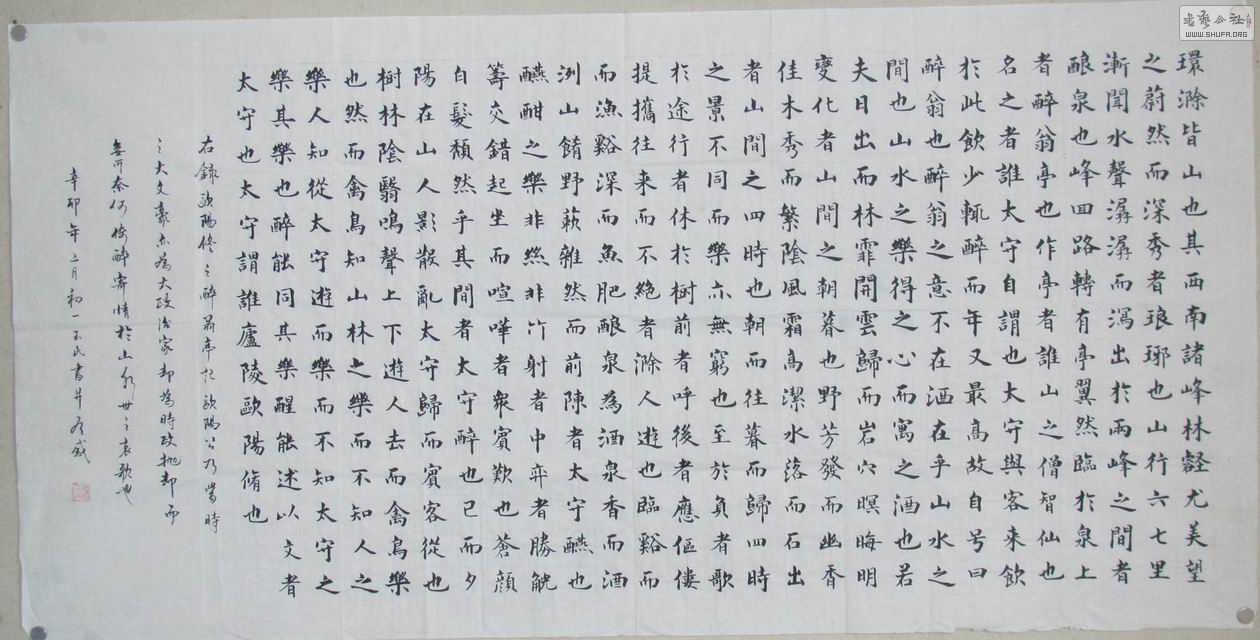 環滁皆山也其西南諸峰林壑尤美望
之蔚然而深秀者琅琊也山行六七里
漸聞水聲潺潺而瀉出於兩峰之間者
釀泉也峰回路轉有亭翼然臨於泉上
者醉翁亭也作亭者誰山之僧智仙也
名之者誰太守自謂也太守與客來飲
於此飲少輒醉而年又最高故自号曰
醉翁也醉翁之意不在酒在乎山水之
間也山水之樂得之心而寓之酒也若
夫日出而林霏開雲歸而岩穴暝晦明
變化者山間之朝暮也野芳發而幽香
佳木秀而繁陰風霜高潔水落而石出
者山間之四時也朝而往暮而歸四時
之景不同而樂亦無窮也至於負者歌
於途行者休於樹前者呼後者應傴僂
提攜往来而不絶者滁人遊也臨谿而
而漁谿深而魚肥釀泉為酒泉香而酒
洌山餚野蔌雜然而前陳者太守醼也
醼酣之樂非絲非竹射者中弈者勝觥
籌交錯起坐而喧嘩者衆賓歎也蒼顏
白髮頹然乎其間者太守醉也已而夕
陽在山人影散亂太守歸而賓客從也
樹林陰翳鳴聲上下遊人去而禽鳥樂
也然而禽鳥知山林之樂而不知人之
樂人知從太守遊而樂而不知太守之
樂其樂也醉能同其樂醒能述以文者
太守也太守謂誰廬陵歐陽脩也
右錄歐陽修之醉翁亭記歐陽公乃當時
之大文豪亦為大政治家却為時政拋却而
無可奈何借醉寄情於山水世之哀歌也
辛卯年二月初一玉民書并有感
書藝公社
WWW.SHUFA.ORG